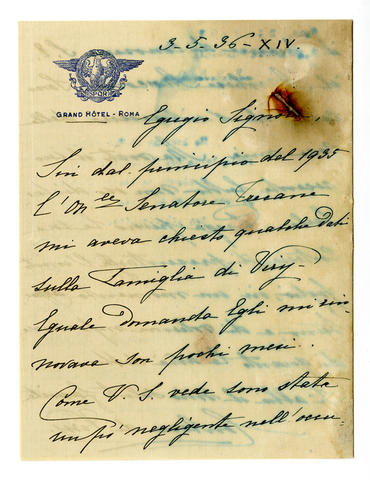 3-5-36-XIV.
GRAND HÔTEL - ROMA
Egregio Signore,
Sin dal principio del 1935
l'On.le Senatore
mi aveva chiesto qualche dati
sulla Famiglia di Viry-
Eguale domanda Egli mi rin-
novava son pochi mesi..
Come V. S. vede sono stata
un pò negligente nell'occu-